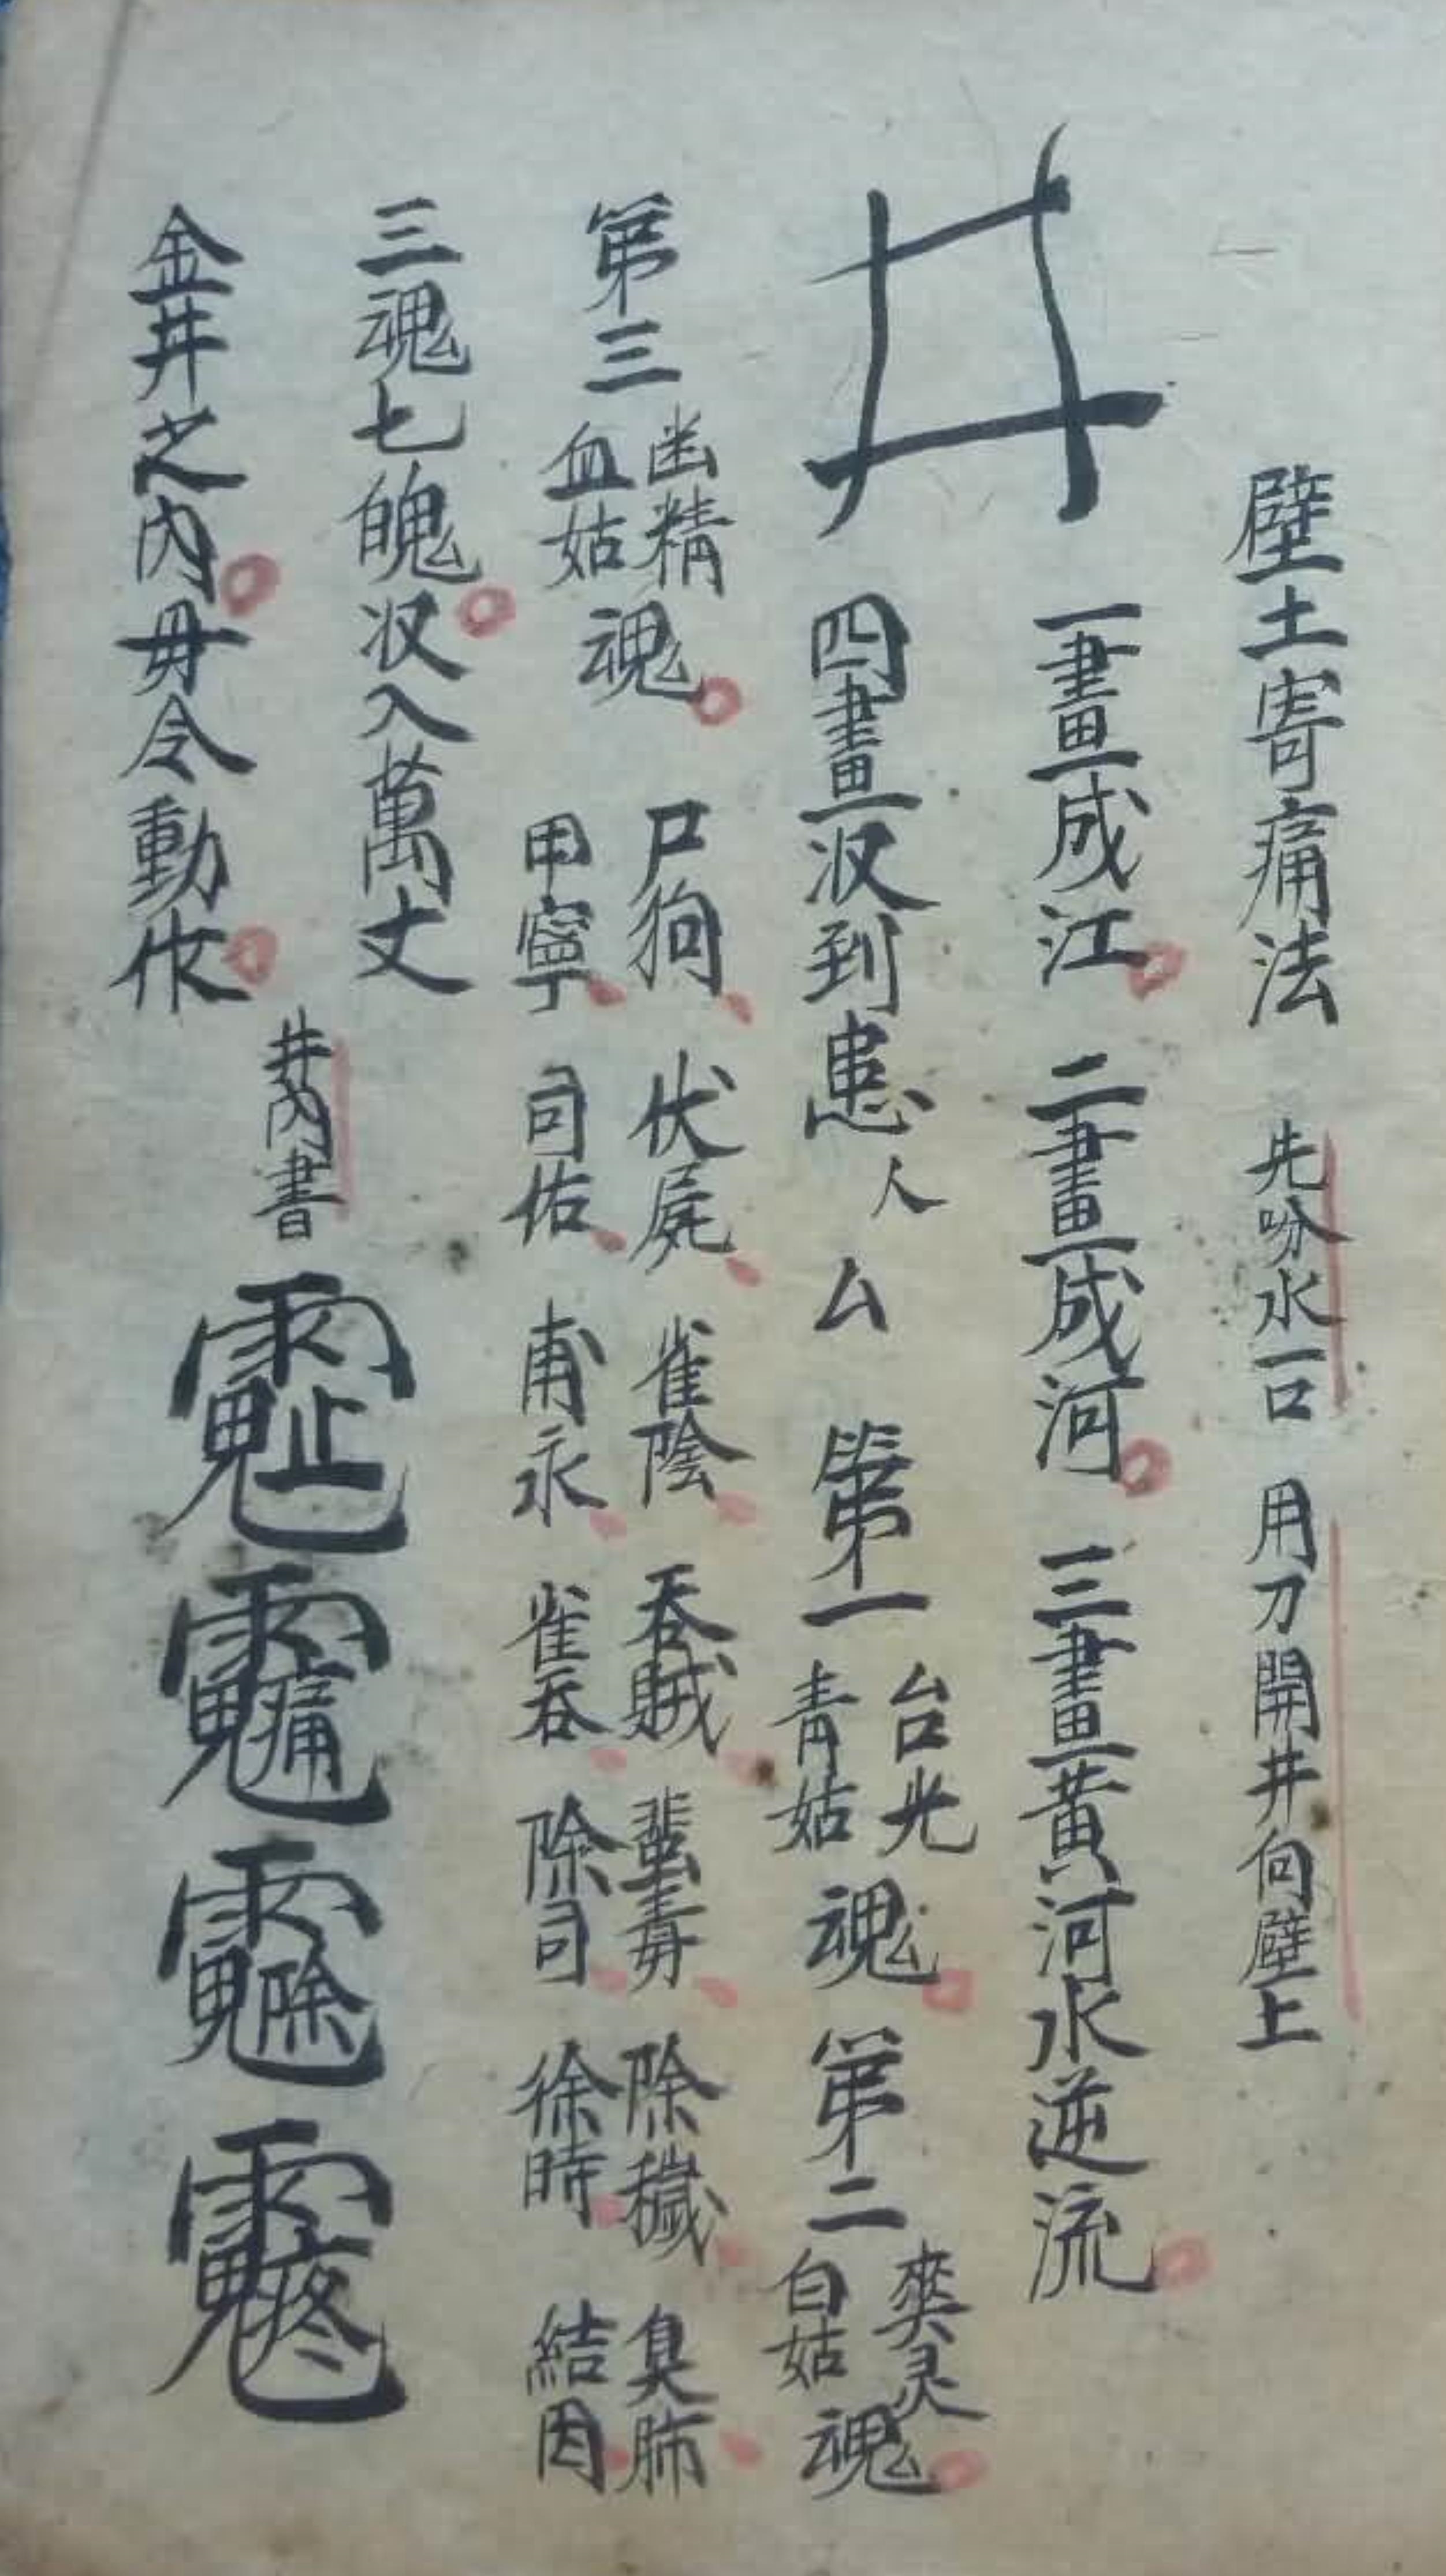 壁土寄痛法 先吩水一口 用刀開井向壁上
井 一畫成江 二畫成河 三畫黃河水逆流
四畫収到患人厶 第一 台光 青姑 魂 第二 爽灵 白姑 魂
第三 幽精 血姑 魂 尸狗 伏屍 雀陰 吞賊 蜚毒 除穢 臭肺
甲寧 司佑 甫永 雀吞 除司 徐時 結因
三魂七魄収入萬丈
金井之內毋令動作 井內書